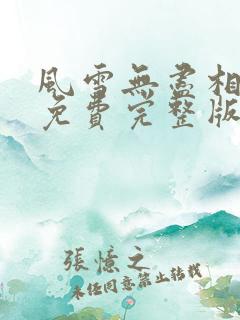 風雪無盡相
免費完整版
張憶之
未任同意禁止轉載